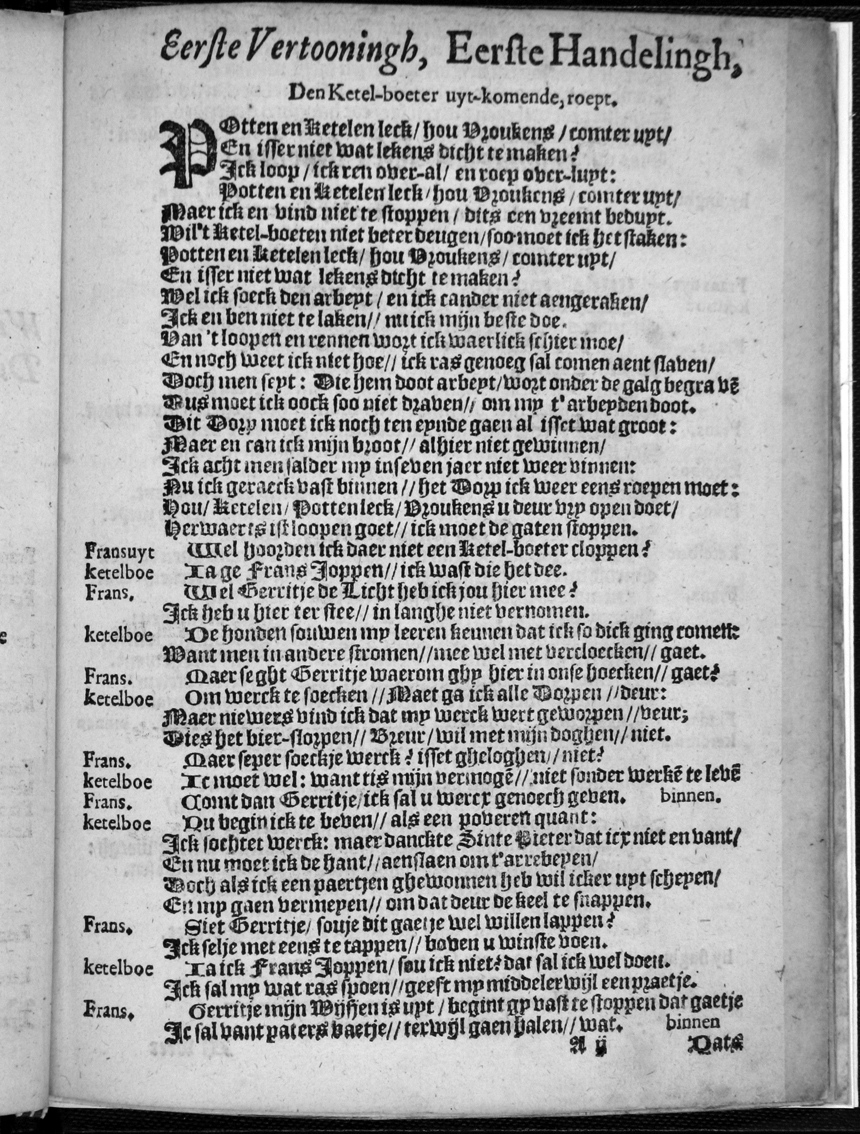 Eerste Vertooningh, Eerste Handelingh,
Den Ketel-boeter uyt-komende, roept.
POtten en Ketelen leck / hou Vroukens / comter uyt /
En isser niet wat lekens dicht te maken?
Ick loop / ick ren over-al / en roep over-luyt:
Potten en Ketelen leck / hou Vroukens / comter uyt /
Maer ick en vind niet te stoppen / dits een vreemt beduyt.
Wil't Ketel-boeten niet beter deugen / soo moet ick het staken:
Potten en Ketelen leck / hou Vroukens / comter uyt /
En isser niet wat lekens dicht te maken?
Wel ick soeck den arbeyt / en ick cander niet aengeraken /
Ick en ben niet te laken // nu ick mijn beste doe.
Van 't loopen en rennen wort ick waerlick schier moe /
En noch weet ick niet hoe // ick ras genoeg sal comen aent slaven /
Doch men seyt: Die hem doot arbeyt / wort onder de galg begra vē
Dus moet ick oock soo niet draven // om my t'arbeyden doot.
Dit Dorp moet ick noch ten eynde gaen al isset wat groot:
Maer en can ick mijn broot // alhier niet gewinnen /
Ick acht men salder my in seven jaer niet weer vinnen:
Nu ick geraeck vast binnen // het Dorp ick weer eens roepen moet:
Hou / Ketelen / Potten leck / Vroukens u deur vry open doet /
Herwaerts ist loopen goet // ick moet de gaten stoppen.
Fransuyt Wel hoorden ick daer niet een Ketel-boeter cloppen?
ketelboe Ia ge Frans Joppen // ick wast die het dee.
Frans. Wel Gerritje de Licht heb ick jou hier mee?
Ick heb u hier ter stee // in langhe niet vernomen.
ketelboe De honden souwen my leeren kennen dat ick so dick ging comen:
Want men in andere stromen // mee wel met vercloecken // gaet.
Frans. Maer seght Gerritje waerom ghy hier in onse hoecken // gaet?
ketelboe Om werck te soecken // Maet ga ick alle Dorpen // deur:
Maer niewers vind ick dat my werck wert geworpen // veur;
Dies het bier-slorpen // Breur / wil met mijn doghen // niet.
Frans. Maer seper soeckje werck? isset gheloghen // niet?
ketelboe Ic moet wel: want tis mijn vermogē // niet sonder werkē te levē
Frans. Comt dan Gerritje / ick sal u wercx genoech geven. binnen.
ketelboe Nu begin ick te beven // als een poveren quant:
Ick sochtet werck: maer danckte Sinte Pieter dat icx niet en vant /
En nu moet ick de hant // aenslaen om t'arrebeyen /
Doch als ick een paertzen ghewonnen heb wil icker uyt scheyen /
En my gaen vermeyen // om dat deur de keel te snappen.
Frans. Siet Gerritje / souje dit gaetje wel willen lappen?
Ick selje met eens te tappen // boven u winste voen.
ketelboe Ia ick Frans Joppen / sou ick niet? dat sal ick wel doen.
Ick sal my wat ras spoen // geeft my middelerwijl een praetje.
Frans. Gerritje mijn Wijfjen is upt / begint gy vast te stoppen dat gaetje
Ic sal vant paters vaetje // terwijl gaen halen // wat. binnen
A ij Dats